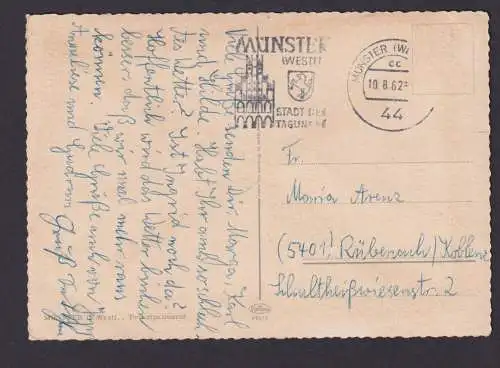 Viele Grüße senden Dir, Maria, Karl
und Hilde. Habt Ihr auch so schlech-
tes Wetter? Ist Ingrid noch da?
Hoffentlich wird das Wetter bald
besser daß wir mal mehr raus
können. Viel Grüße auch von
Anneliese und
MÜNSTER
(WESTF)
STADT DER
TAGUNGEN
MÜNSTER (WE
cc
10.8.62
44
Fr.
Maria Arenz
(5401) Rübenach/Koblenz
Schultheißwiesenstr. 2
MÜNSTER i. Westf.